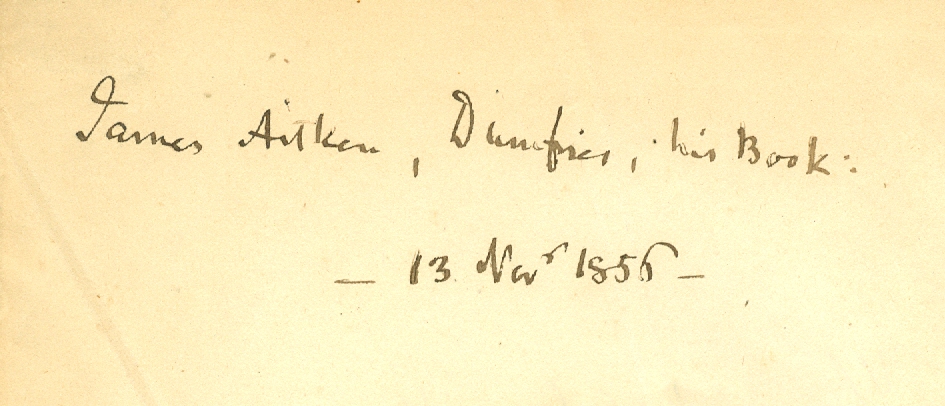 James Aitken, Dumfries, his Book:
— 13 Novr 1856 —